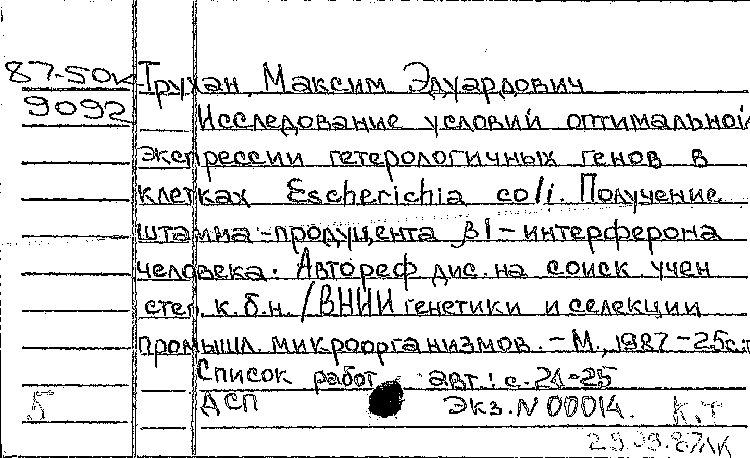 87-50к Трухан, Максим Эдуардович
9092 Исследование условий оптимальной
экспрессии гетерологичных генов в
клетках Escherichia coli. Получение
штамма-продуцента β1-интерферона
человека. Автореф дис. на соиск учен
степ. к.б.н. /ВНИИ генетики и селекции
промышл. микроорганизмов. - М., 1987 - 25с.
Список работ авт.: с. 24-25
5 ДСП Экз. N 00014. К.Т
87ЛК